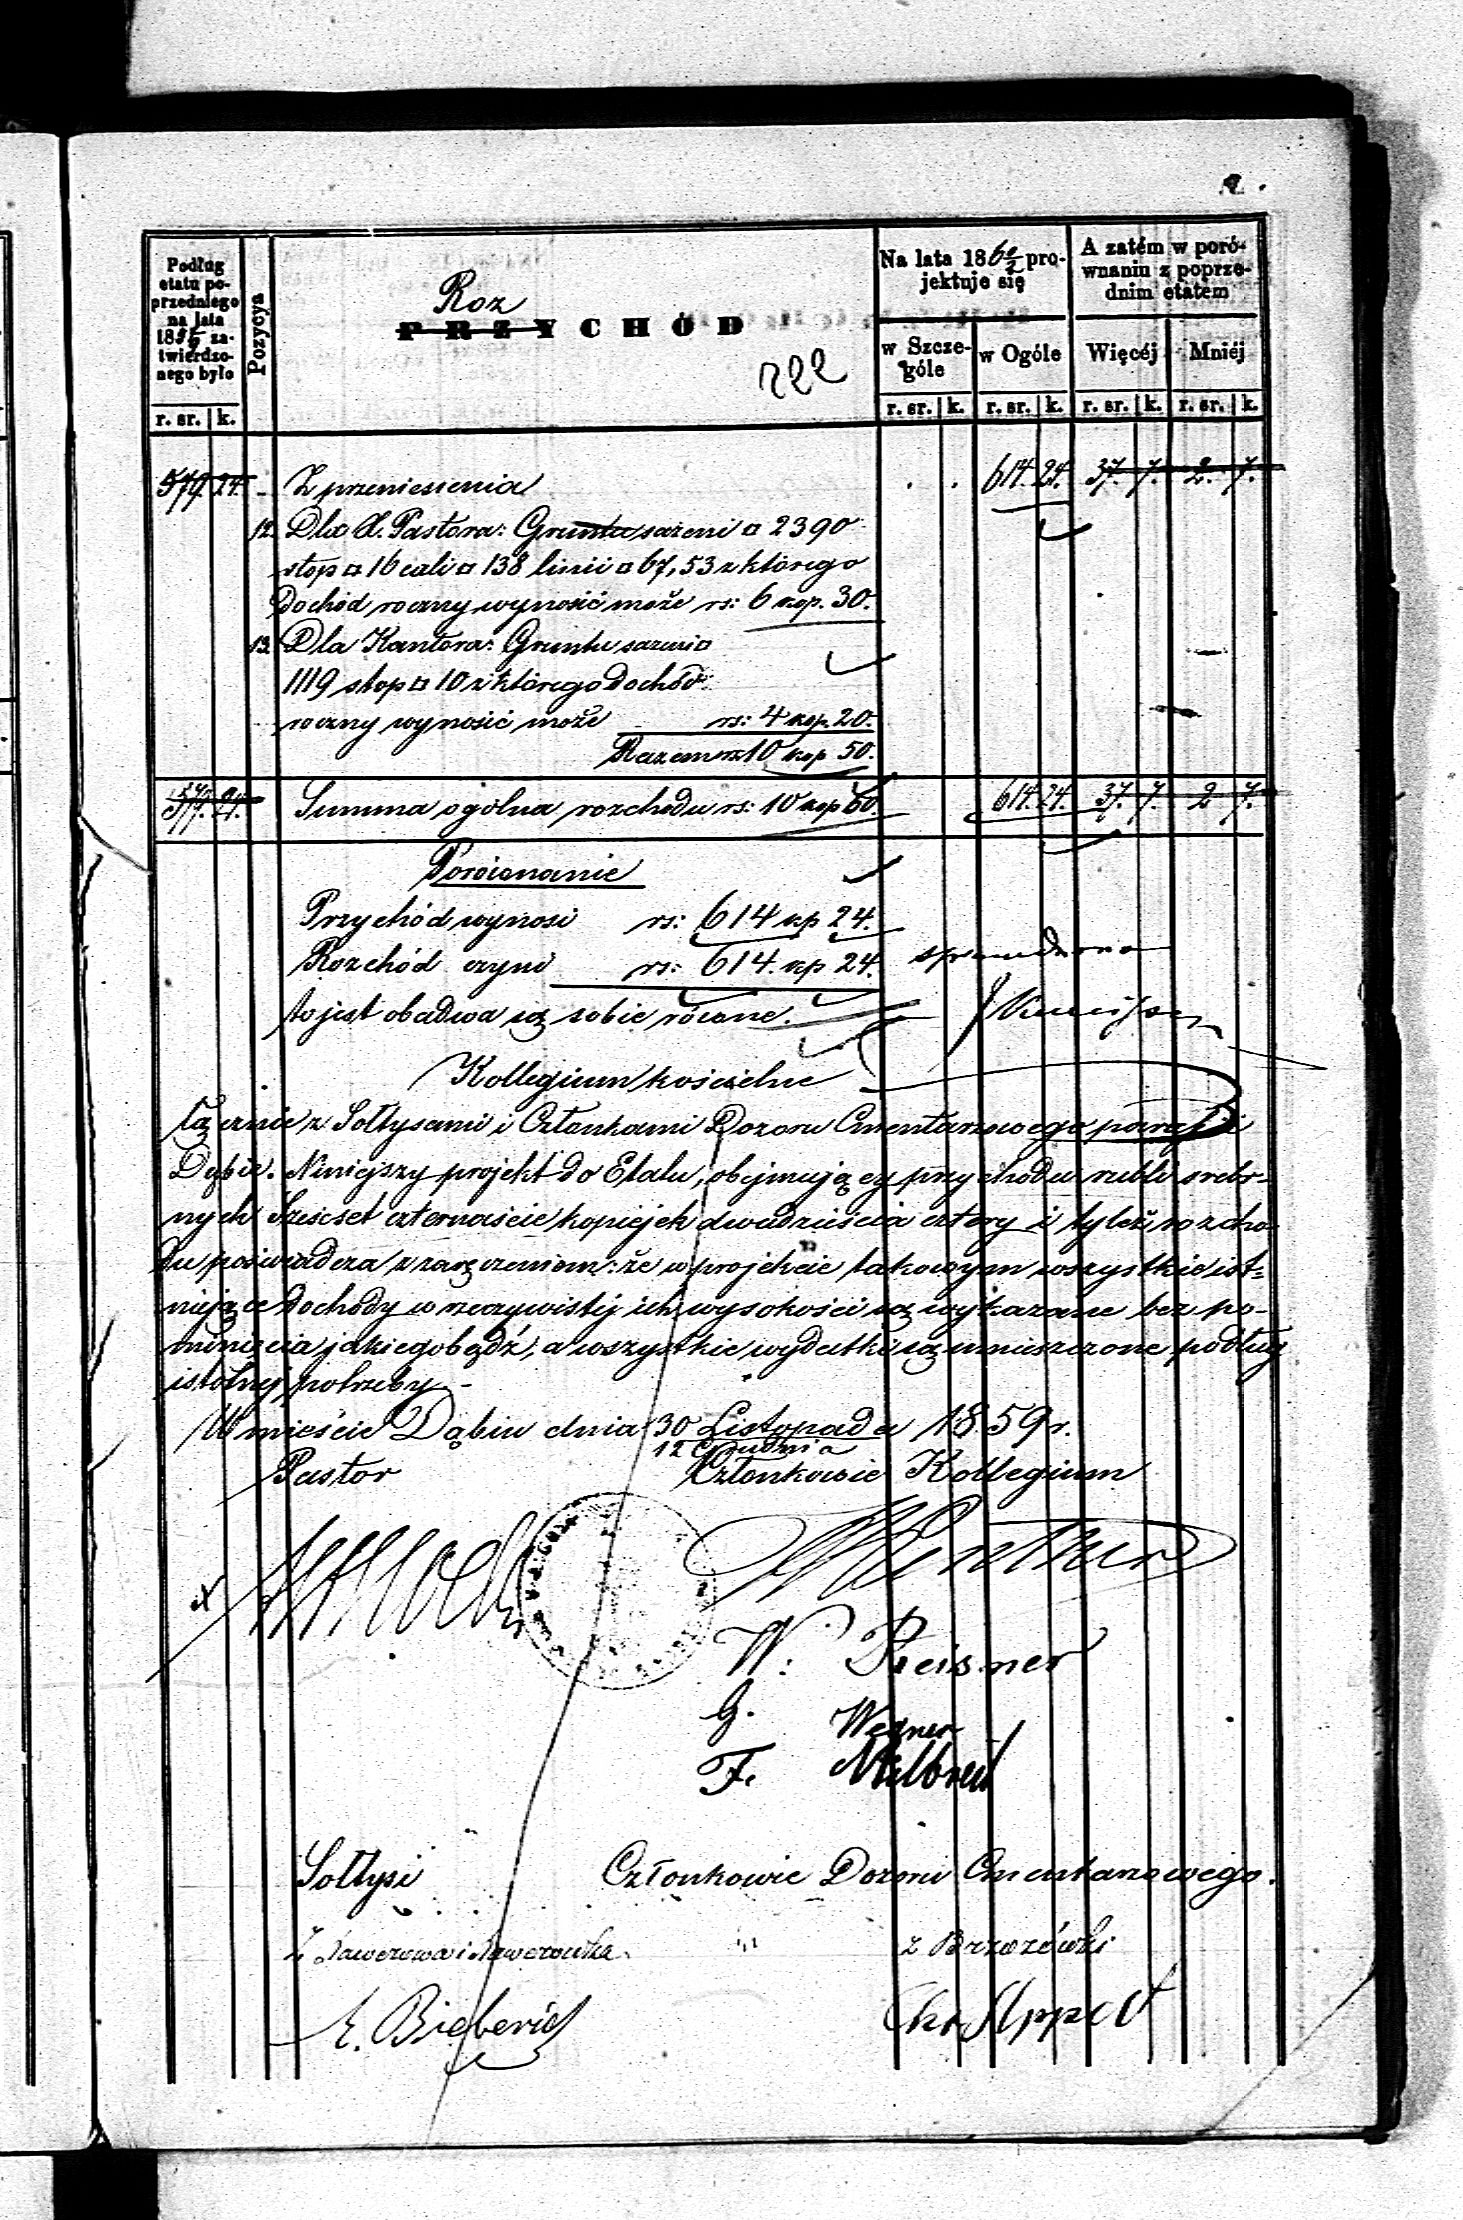 Podług etatu poprzedniego na lata 18 zatwierdzonego było
r. sr. k.
Pozycya
Roz
PRZYCHÓD
222
Na lata 1860/2 projektuje się
w Szczególe
w Ogóle
r. sr. k. r. sr. k.
A zatém w porównaniu z poprzednim etatem
Więcéj Mniéj
r. sr. k. r. sr. k.
579 24 - Z przeniesienia . . 614. 24. 37. 7. 2. 7.
12. Dla X. Pastora: Gruntu sażeni □ 2390
stop □ 16 cali □ 138 linii □ 67,53 z którego
Dochód roczny wynosić może rs: 6 kop. 30.
13. Dla Kantora: Gruntu sażeni □
1119 stop □ 10 z którego Dochód
roczny wynosić może rs: 4 kop. 20.
Razem rs 10 kop 50.
579. 24. Summa ogólna rozchodu rs: 10 kop 50. 614. 24. 37. 7. 2 7.
Porównanie
Przychód wynosi rs: 614 kp 24.
Rozchód czyni rs: 614. kp 24. sprawdzono
to jest obadwa są sobie równe.
Kollegium kościelne
łącznie z Sołtysami i Członkami Dozoru Cmentarzowego parafii
Dąbie. Niniejszy projekt do Etatu, obejmujący przychodu rubli srebr-
nych Sześćset czternaście kopiejek dwadzieścia cztery i tyleż rozcho-
du poświadcza z zaręczeniem: że w projekcie takowym wszystkie ist-
niejące Dochody w rzeczywistéj ich wysokości są wykazane bez po-
minięcia jakiegobądź, a wszystkie wydatki są umieszczone podług
istotnej potrzeby -
W mieście Dąbiu dnia 30 Listopada 1859 r.
12 Grudnia
Pastor Członkowie Kollegium
W. Reisner
G. Wegner
F. Milbredt
Sołtysi Członkowie Dozoru Cmentarzowego.
z Brzozówki
E. Bieberich